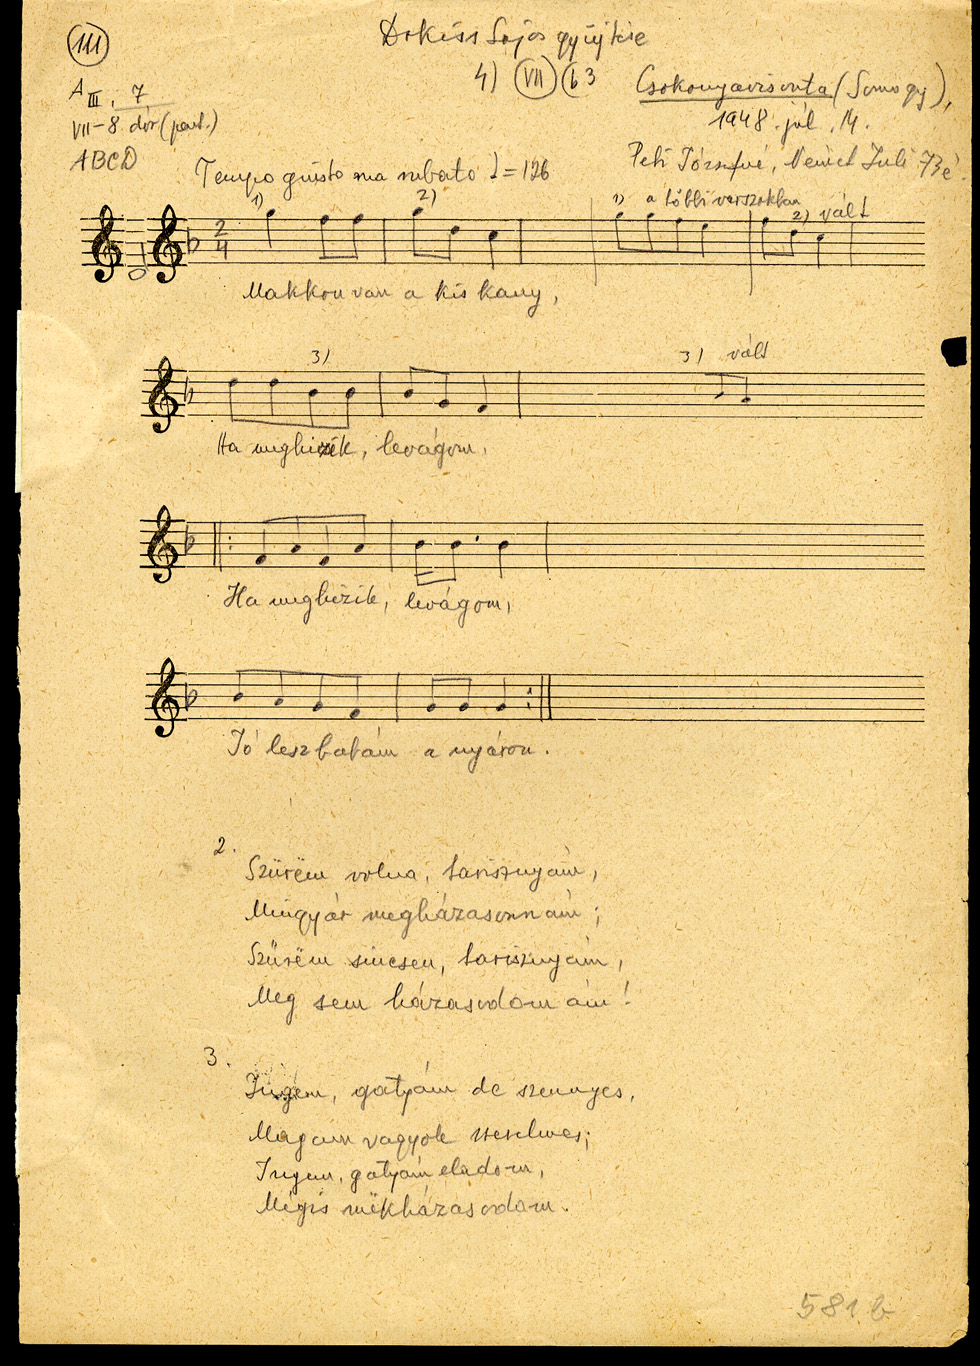 111
Dr Kiss Lajos gyűjtése
4) VII b3
Csokonyavisonta (Somogy),
1948. júl. 14.
A III. 7
VII–8 dór (pent.)
ABCD
Péti Józsefné, Német Juli 73 é.
Tempo giusto ma rubato ♩=126
1) 2) 1) a többi verszakban 2) vált
2
4
Makkon van a kis kany,
3) 3) vált
Ha meghizik, levágom,
Ha meghizik, levágom,
Jó lesz babám a nyáron.
2.
Szürëm volna, tarisznyám,
Mingyár megházasonnám;
Szürëm sincsen, tarisznyám,
Meg sem házasodom ám!
3.
Ingëm, gatyám de szennyes,
Magam vagyok szerelmes;
Ingem, gatyám eladom,
Mégis mëkházasodom.
581 b